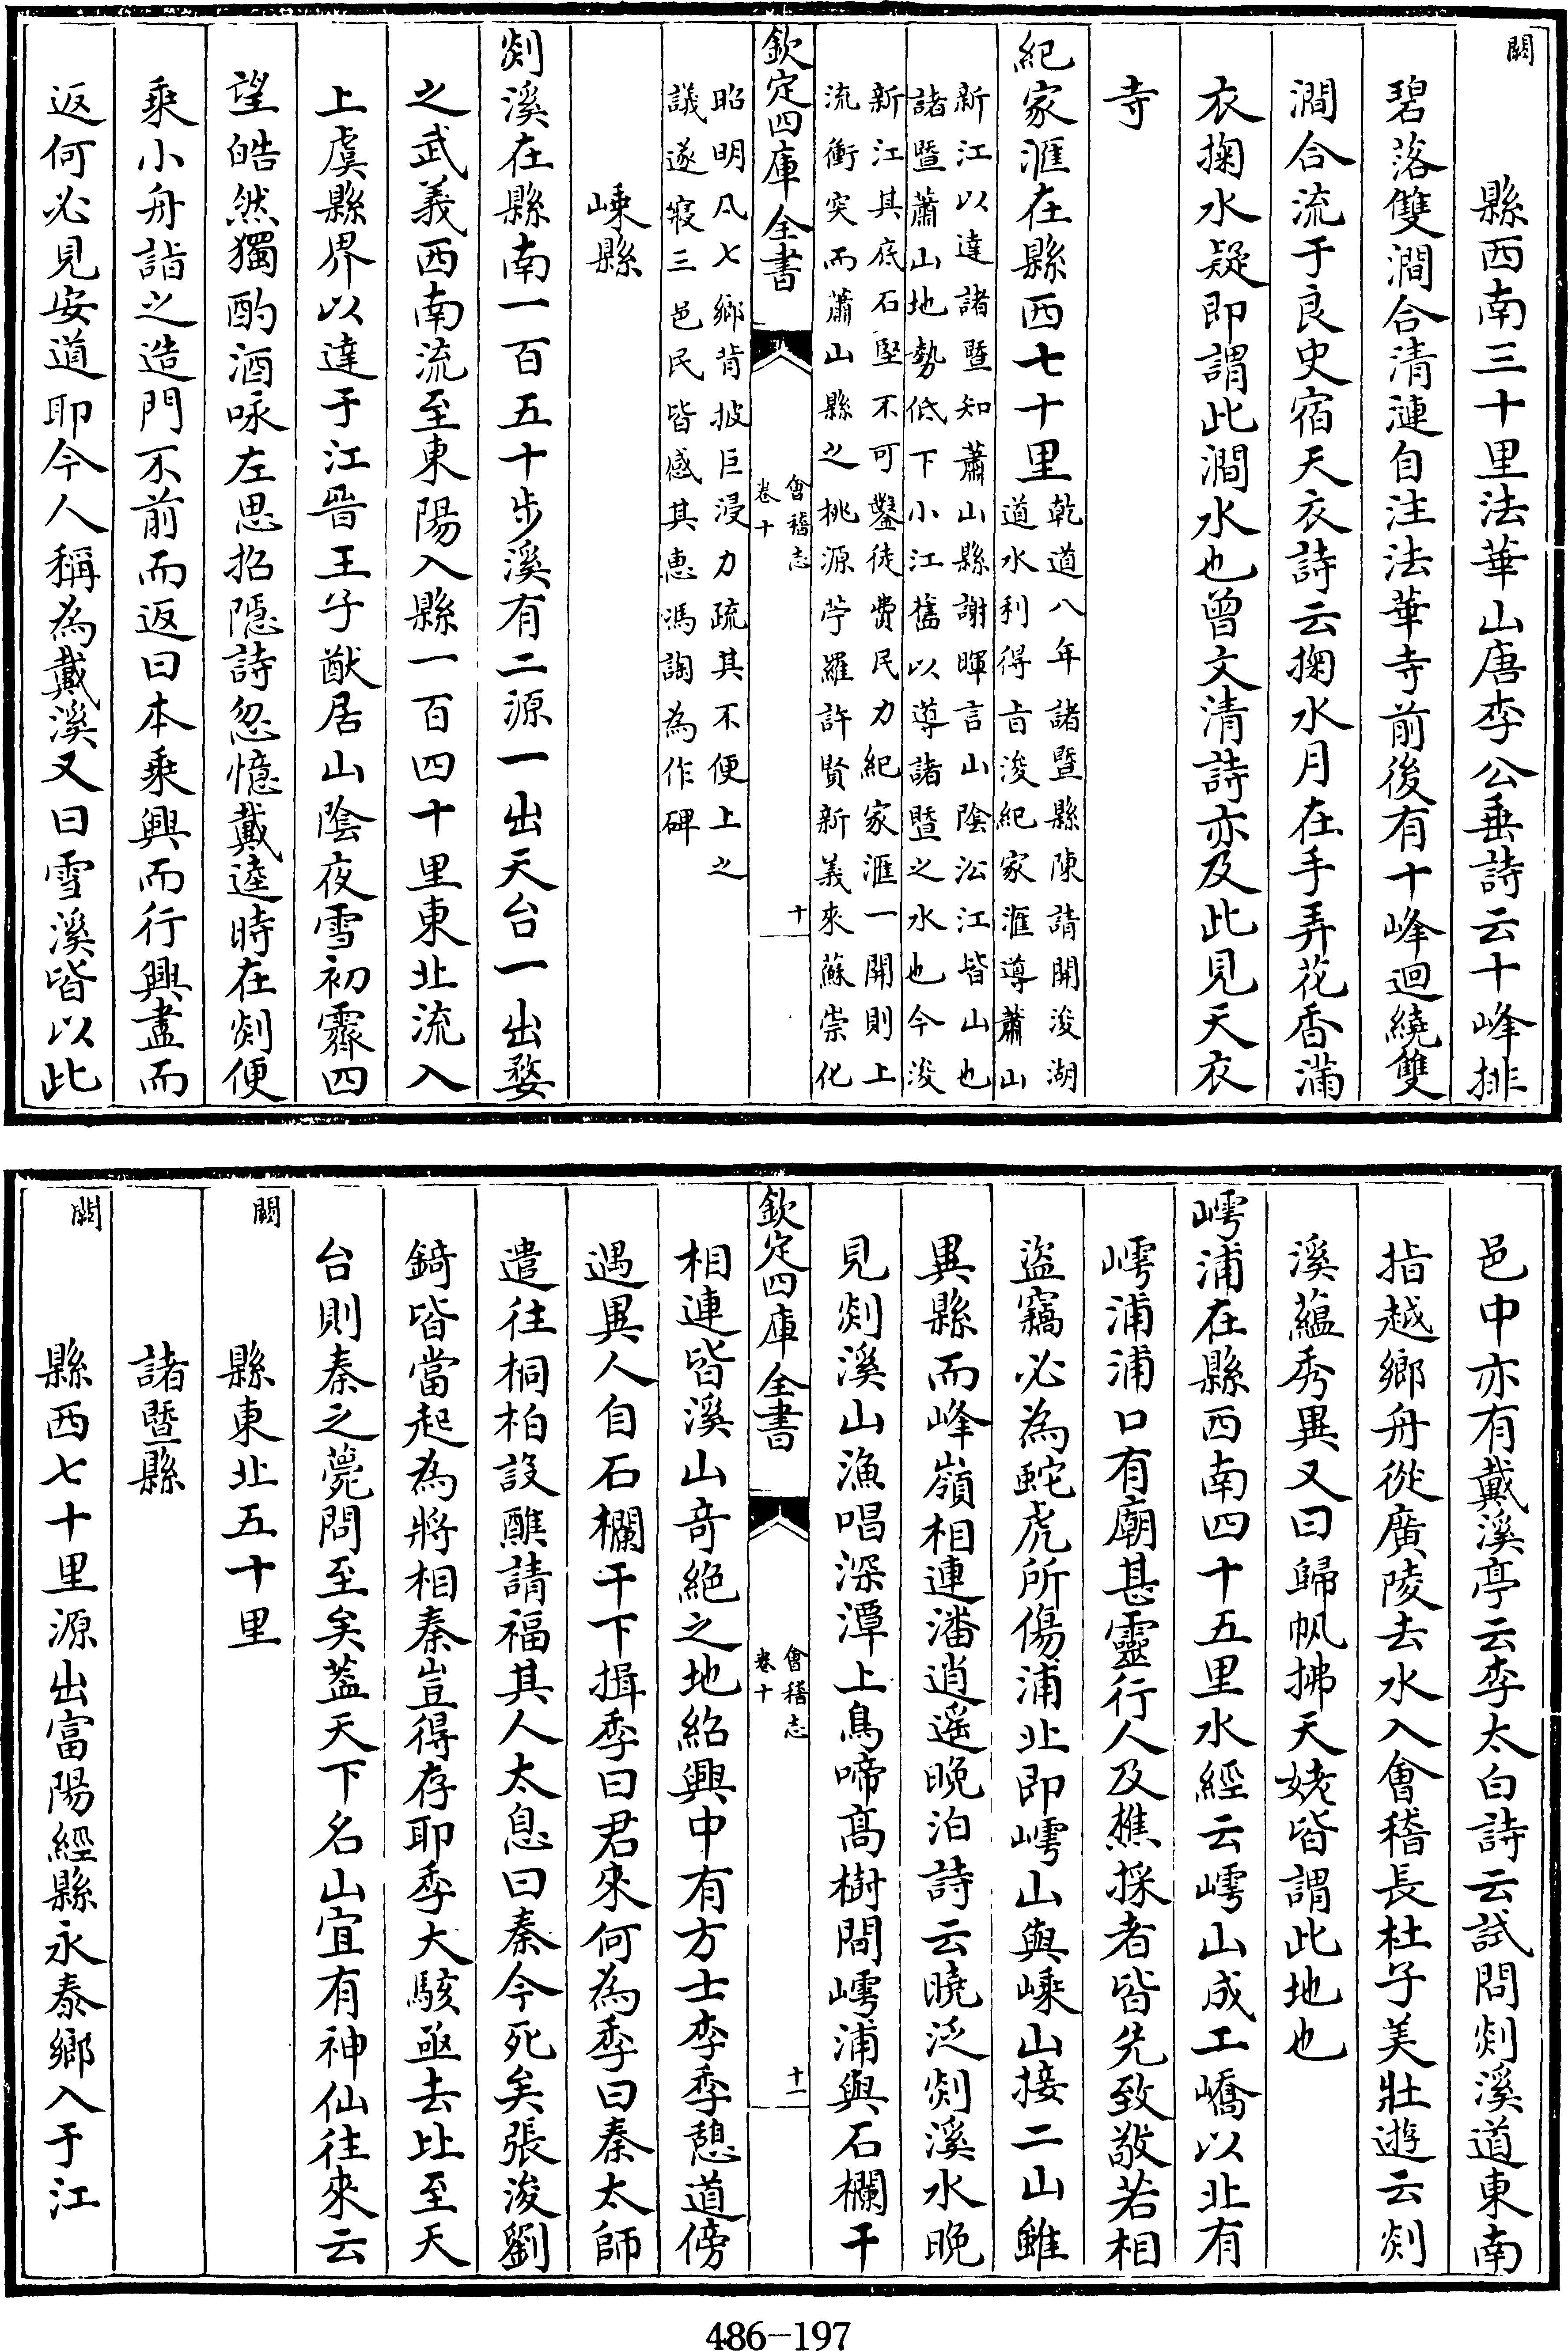 闕　　縣西南三十里法華山唐李公垂詩云十峰排
碧落雙澗合清漣自注法華寺前後有十峰迴繞雙
澗合流于良史宿天衣詩云掬水月在手弄花香滿
衣掬水疑即謂此澗水也曾文清詩亦及此見天衣
寺
紀家滙在縣西七十里
乾道八年諸暨縣陳請開浚湖
道水利得旨浚紀家滙導蕭山
新江以達諸暨知蕭山縣謝暉言山陰㳂江皆山也
諸暨蕭山地勢低下小江舊以導諸暨之水也今浚
新江其底石堅不可鑿徒費民力紀家滙一開則上
流衝突而蕭山縣之桃源苧羅許賢新義來蘇崇化
欽定四庫全書
會稽志
卷十
十
昭明凡七鄉背披巨浸力疏其不便上之
議遂寢三邑民皆感其惠馮詢為作碑
嵊縣
剡溪在縣南一百五十步溪有二源一出天台一出婺
之武義西南流至東陽入縣一百四十里東北流入
上虞縣界以達于江晉王子猷居山陰夜雪初霽四
望皓然獨酌酒咏左思招隱詩忽憶戴逵時在剡便
乘小舟詣之造門不前而返曰本乘興而行興盡而
返何必見安道耶今人稱為戴溪又曰雪溪皆以此
邑中亦有戴溪亭云李太白詩云試問剡溪道東南
指越鄉舟從廣陵去水入會稽長杜子美壯遊云剡
溪蘊秀異又曰歸帆拂天姥皆謂此地也
嶀浦在縣西南四十五里水經云嶀山成工嶠以北有
嶀浦浦口有廟甚靈行人及樵採者皆先致敬若相
盜竊必為蛇虎所傷浦北即嶀山與嵊山接二山雖
異縣而峰嶺相連潘逍遙晚泊詩云曉泛剡溪水晚
見剡溪山漁唱深潭上鳥啼高樹間嶀浦與石欄干
欽定四庫全書
會稽志
卷十
十一
相連皆溪山竒絶之地紹興中有方士李季憩道傍
遇異人自石欄干下揖季曰君來何為季曰秦太師
遣往桐柏設醮請福其人太息曰秦今死矣張浚劉
錡皆當起為將相秦豈得存耶季大駭亟去比至天
台則秦之薨問至矣葢天下名山宜有神仙往來云
闕　　縣東北五十里
諸暨縣
闕　　縣西七十里源出富陽經縣永泰鄉入于江
486-197